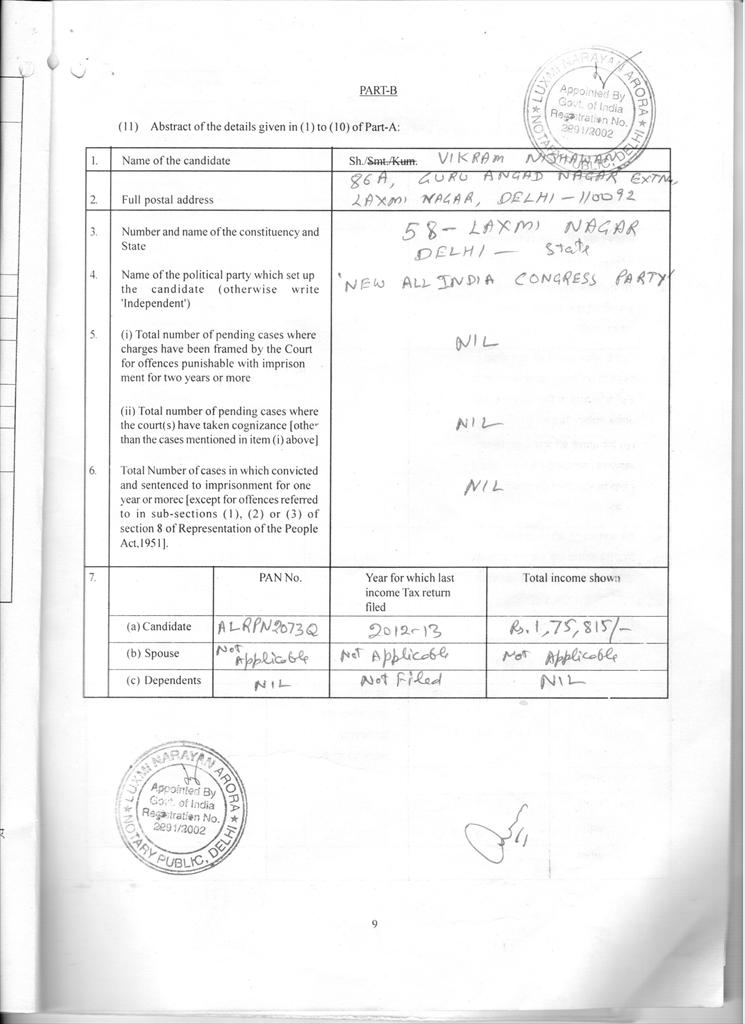 PART-B
LUXMI NARAYAN ARORA
Appointed By
Govt. of India
Registration No.
2291/2002
NOTARY PUBLIC, DELHI
(11) Abstract of the details given in (1) to (10) of Part-A:
1. Name of the candidate Sh./Smt./Kum. VIKRAM NISHAWAN
86A, GURU ANGAD NAGAR EXTN,
2. Full postal address LAXMI NAGAR, DELHI-110092
3. Number and name of the constituency and 58-LAXMI NAGAR
State DELHI - State
4. Name of the political party which set up
the candidate (otherwise write 'NEW ALL INDIA CONGRESS PARTY'
'Independent')
5. (i) Total number of pending cases where
charges have been framed by the Court NIL
for offences punishable with imprison
ment for two years or more
(ii) Total number of pending cases where
the court(s) have taken cognizance [other NIL
than the cases mentioned in item (i) above]
6. Total Number of cases in which convicted
and sentenced to imprisonment for one NIL
year or morec [except for offences referred
to in sub-sections (1), (2) or (3) of
section 8 of Representation of the People
Act,1951].
7. PAN No. Year for which last Total income shown
income Tax return
filed
(a) Candidate ALRPN2073Q 2012-13 Rs.1,75,815/-
(b) Spouse Not Applicable Not Applicable Not Applicable
(c) Dependents NIL Not Filed NIL
LUXMI NARAYAN ARORA
Appointed By
Govt. of India
Registration No.
2291/2002
NOTARY PUBLIC, DELHI
9